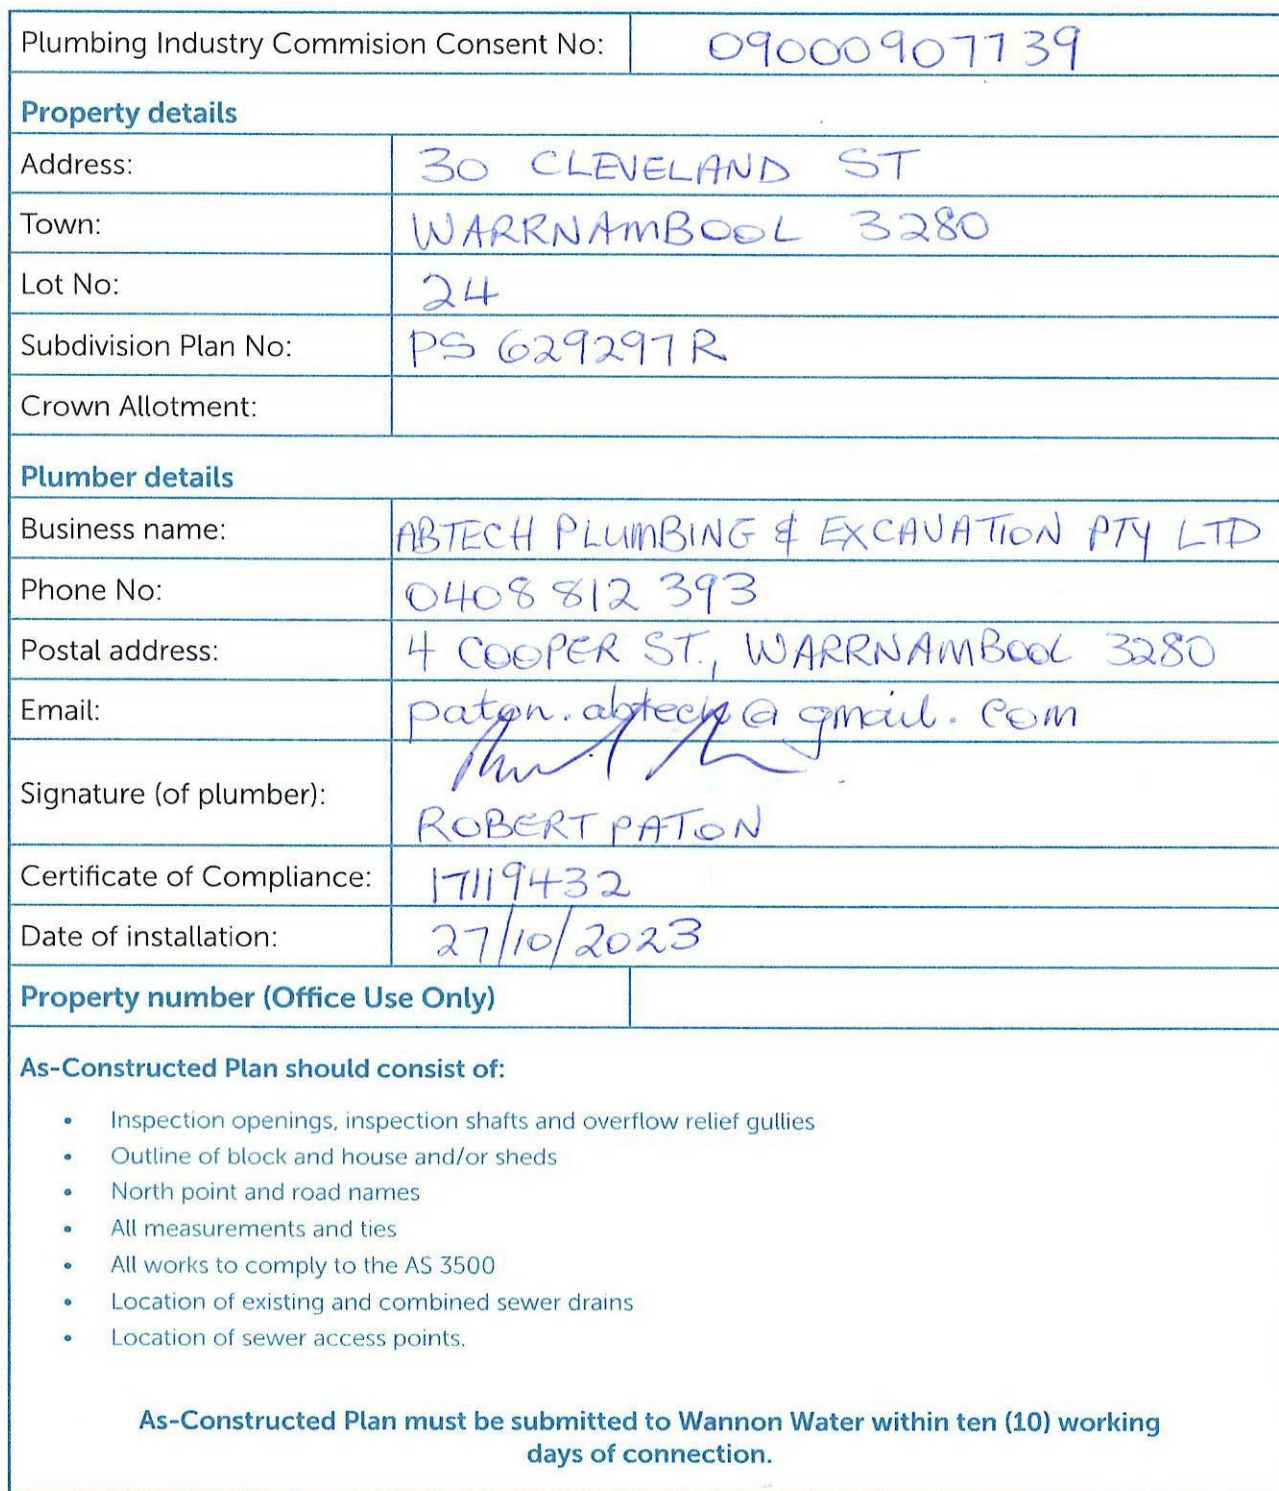 Plumbing Industry Commision Consent No: 09000907739
Property details
Address: 30 CLEVELAND ST
Town: WARRNAMBOOL 3280
Lot No: 24
Subdivision Plan No: PS 629297R
Crown Allotment:
Plumber details
Business name: ABTECH PLUMBING & EXCAVATION PTY LTD
Phone No: 0408 812 393
Postal address: 4 COOPER ST., WARRNAMBOOL 3280
Email: paton.abtech@gmail.com
Signature (of plumber):
ROBERT PATON
Certificate of Compliance: 17119432
Date of installation: 27/10/2023
Property number (Office Use Only)
As-Constructed Plan should consist of:
• Inspection openings, inspection shafts and overflow relief gullies
• Outline of block and house and/or sheds
• North point and road names
• All measurements and ties
• All works to comply to the AS 3500
• Location of existing and combined sewer drains
• Location of sewer access points.
As-Constructed Plan must be submitted to Wannon Water within ten (10) working
days of connection.